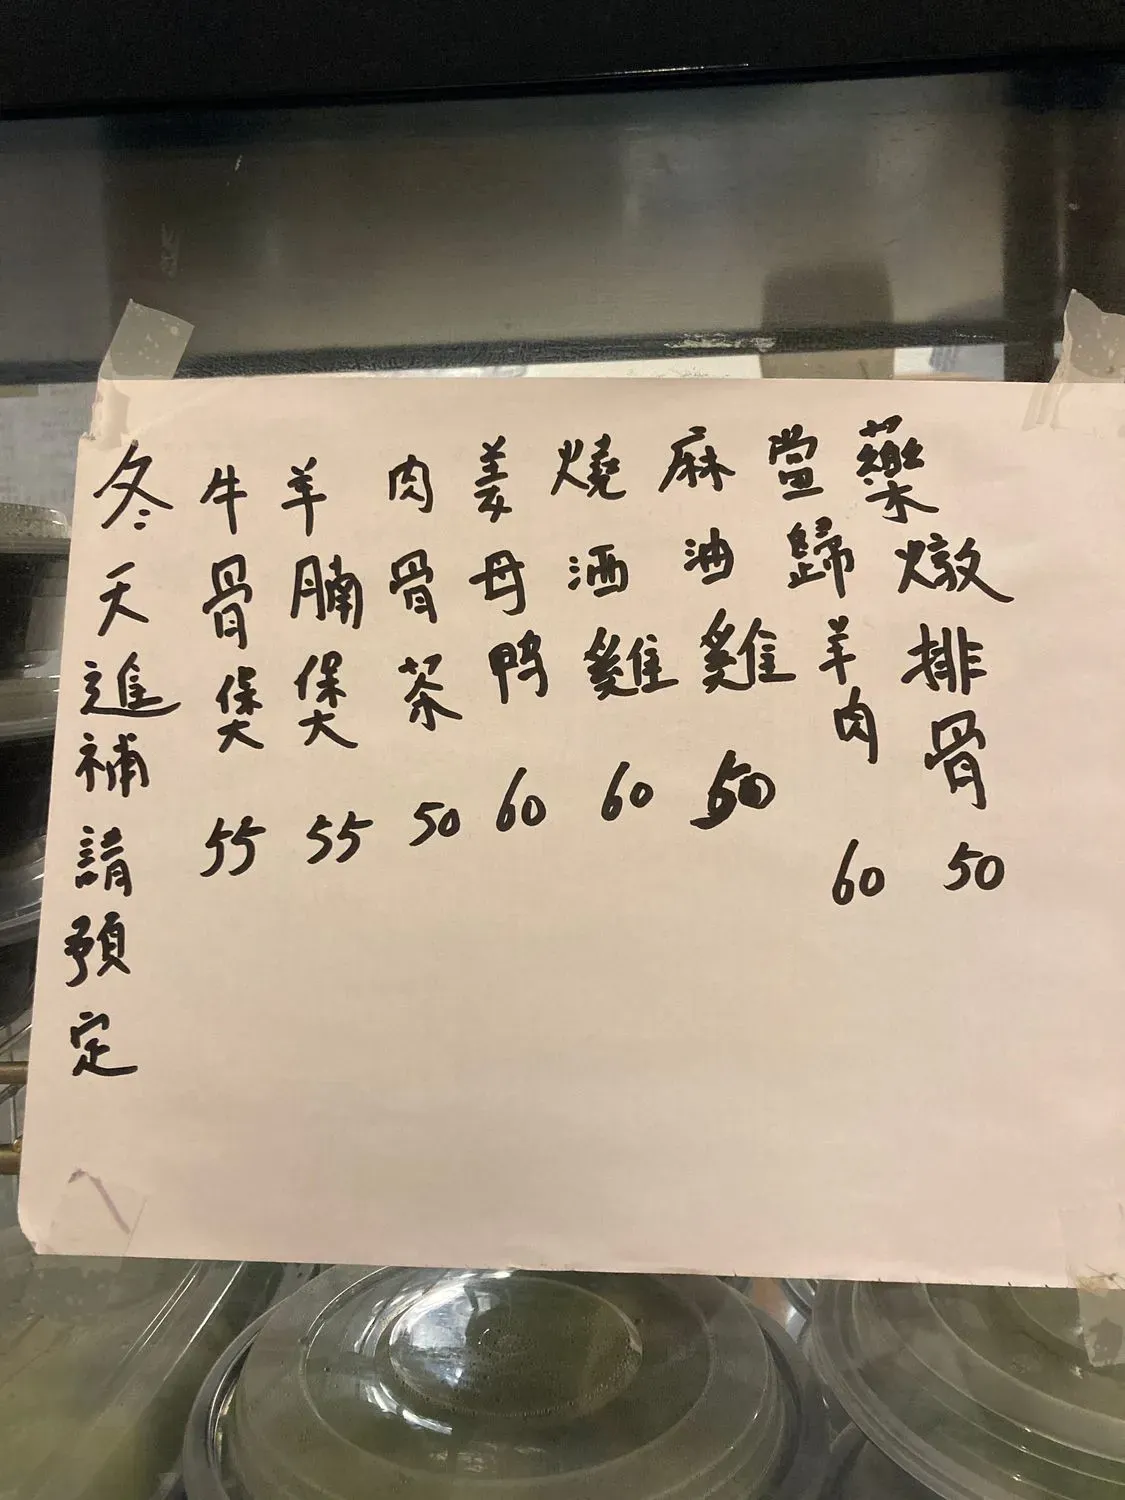 冬天進補請預定
牛骨煲 55
羊腩煲 55
肉骨茶 50
姜母鴨 60
燒酒雞 60
麻油雞 50
當歸羊肉 60
藥燉排骨 50